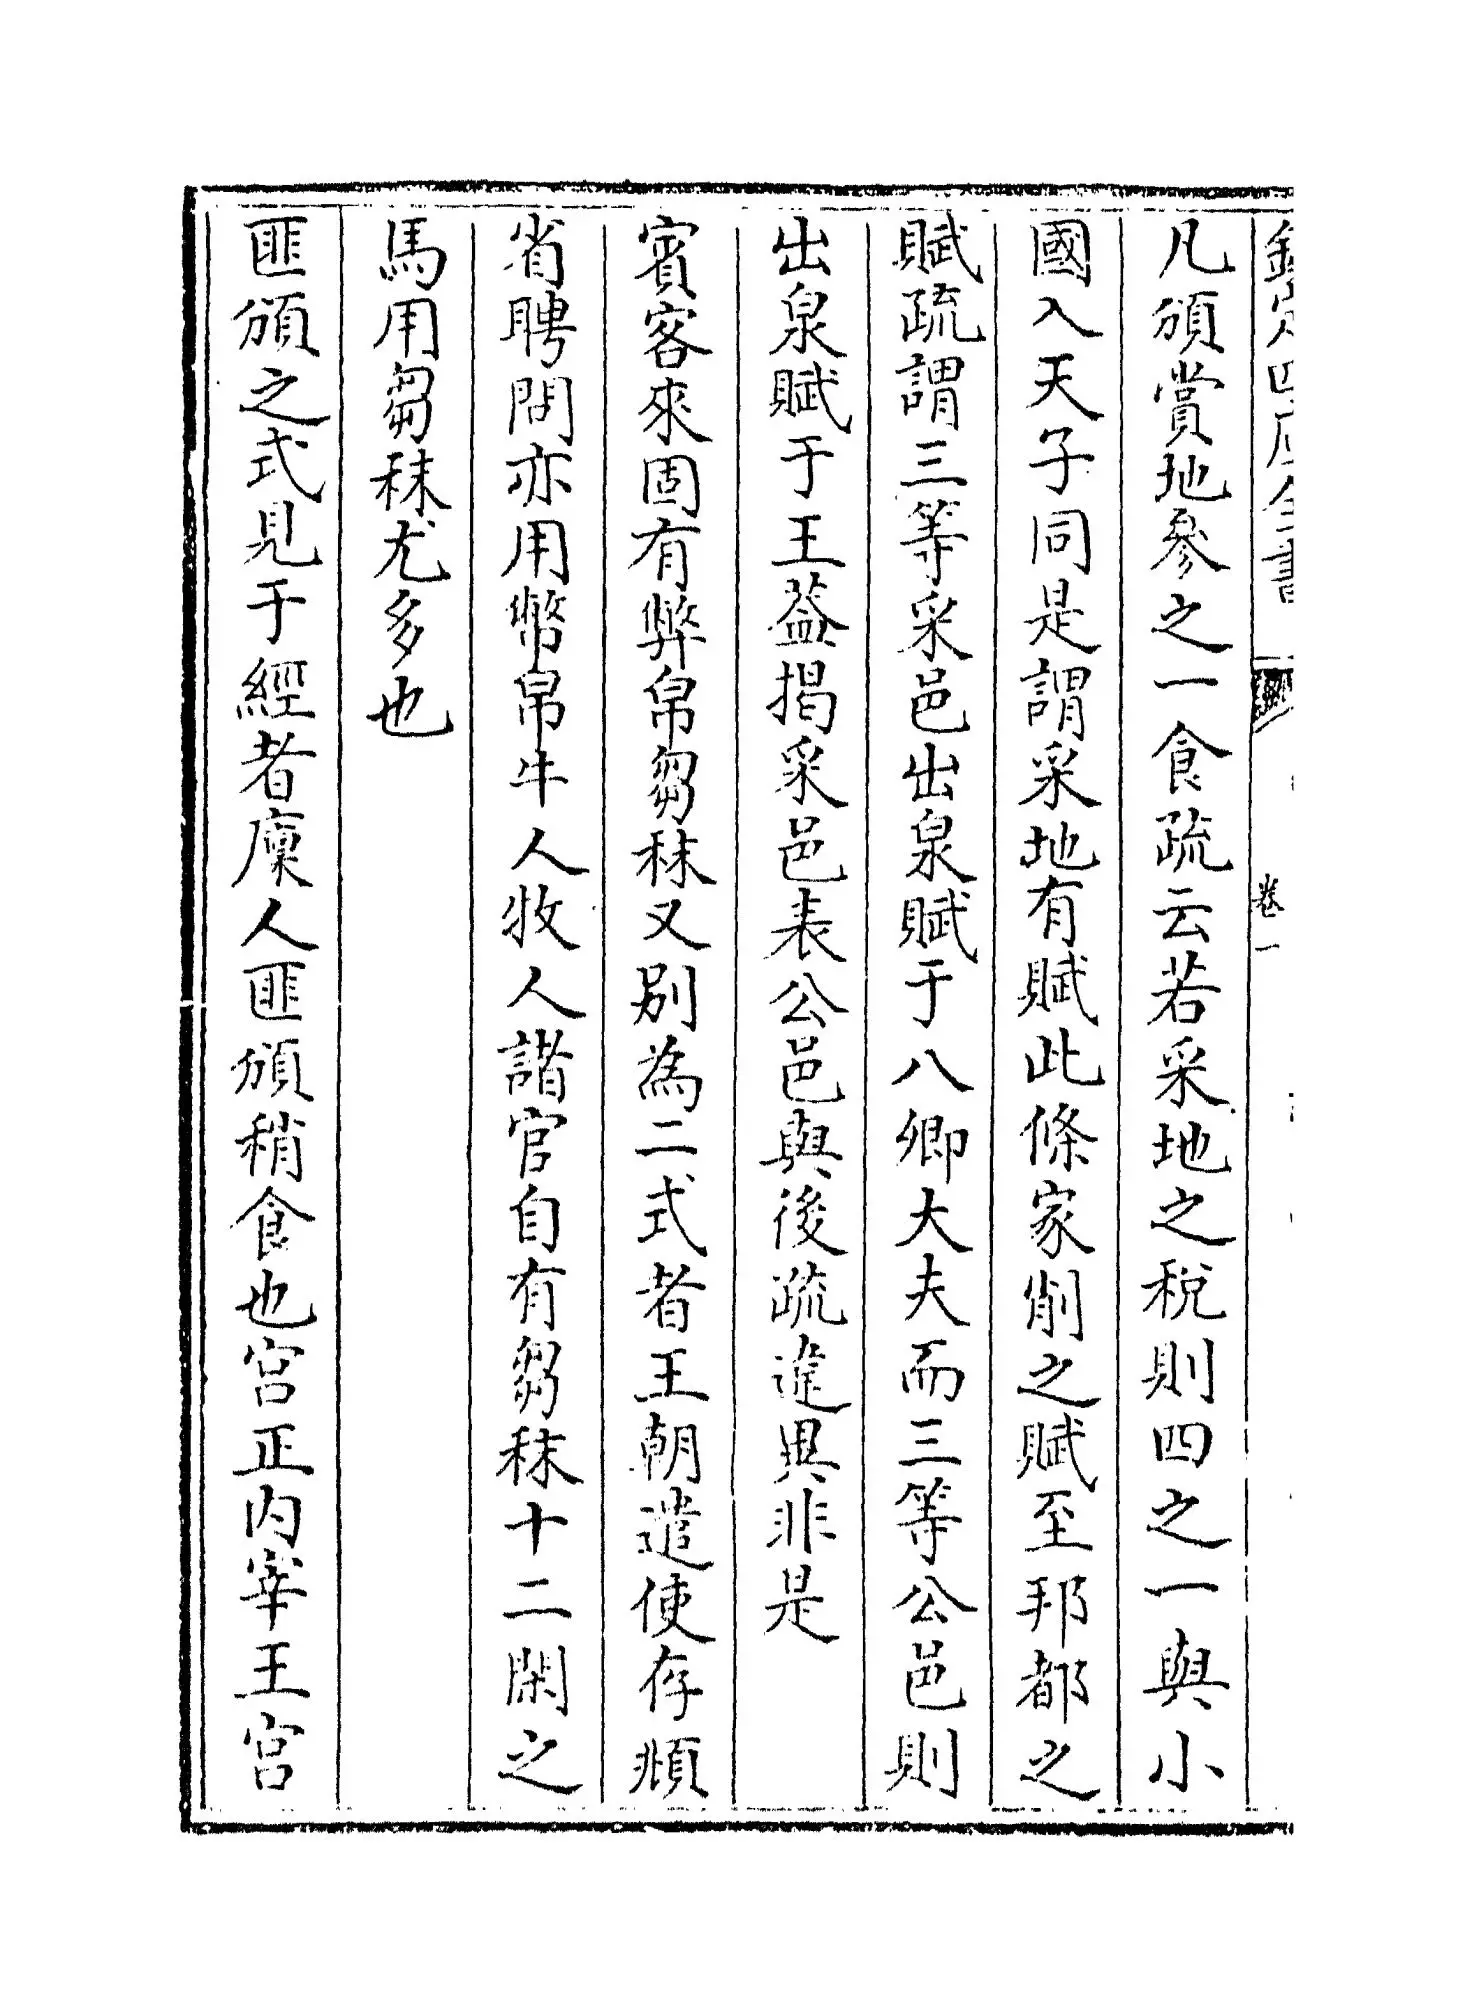 欽定四庫全書
卷一
凡頒賞地參之一食疏云若采地之稅則四之一與小
國入天子同是謂采地有賦此條家削之賦至邦都之
賦疏謂三等采邑出泉賦于八卿大夫而三等公邑則
出泉賦于王葢揭采邑表公邑與後疏違異非是
賓客來固有弊帛芻秣又別為二式者王朝遣使存頫
省聘問亦用幣帛牛人牧人諸官自有芻秣十二閑之
馬用芻秣尤多也
匪頒之式見于經者廩人匪頒稍食也宮正內宰王宮